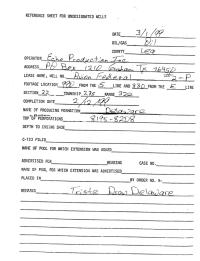 REFERENCE SHEET FOR UNDESIGNATED WELLS
DATE 3/1/99
OIL/GAS Oil
COUNTY Lea
OPERATOR Echo Production Inc
ADDRESS PO Box 1210 Graham Tx 76450
LEASE NAME, WELL NO. Federal 2-P
FOOTAGE LOCATION 990 FROM THE S LINE AND 330 FROM THE E LINE
SECTION 22 TOWNSHIP 23S RANGE 32E
COMPLETION DATE 2/2/99
NAME OF PRODUCING FORMATION Delaware
TOP OF PERFORATIONS 8198-8208
DEPTH TO CASING SHOE
C-123 FILED
NAME OF POOL FOR WHICH EXTENSION WAS ASKED
ADVERTISED FOR HEARING CASE NO.
NAME OF POOL FOR WHICH EXTENSION WAS ADVERTISED
PLACED IN BY ORDER NO. R-
REMARKS Triste Draw Delaware